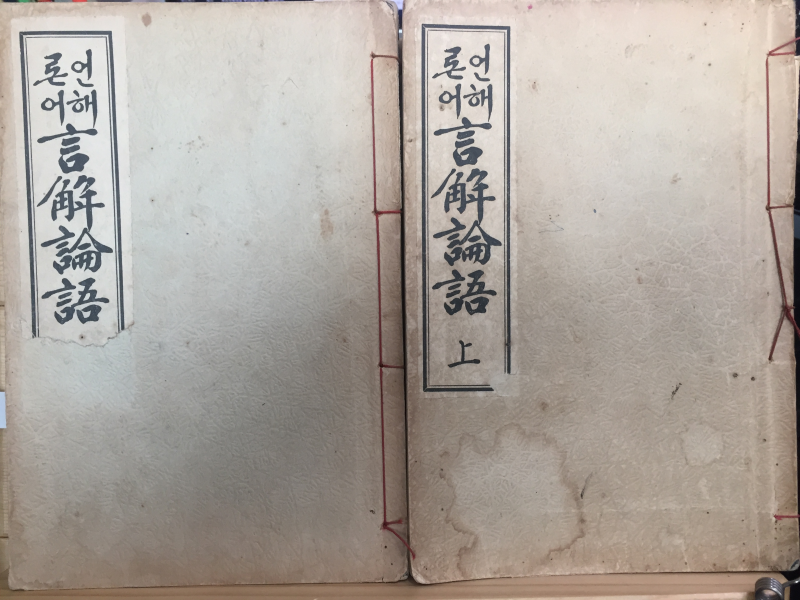 언해
론어
言解論語
언해
론어
言解論語
上